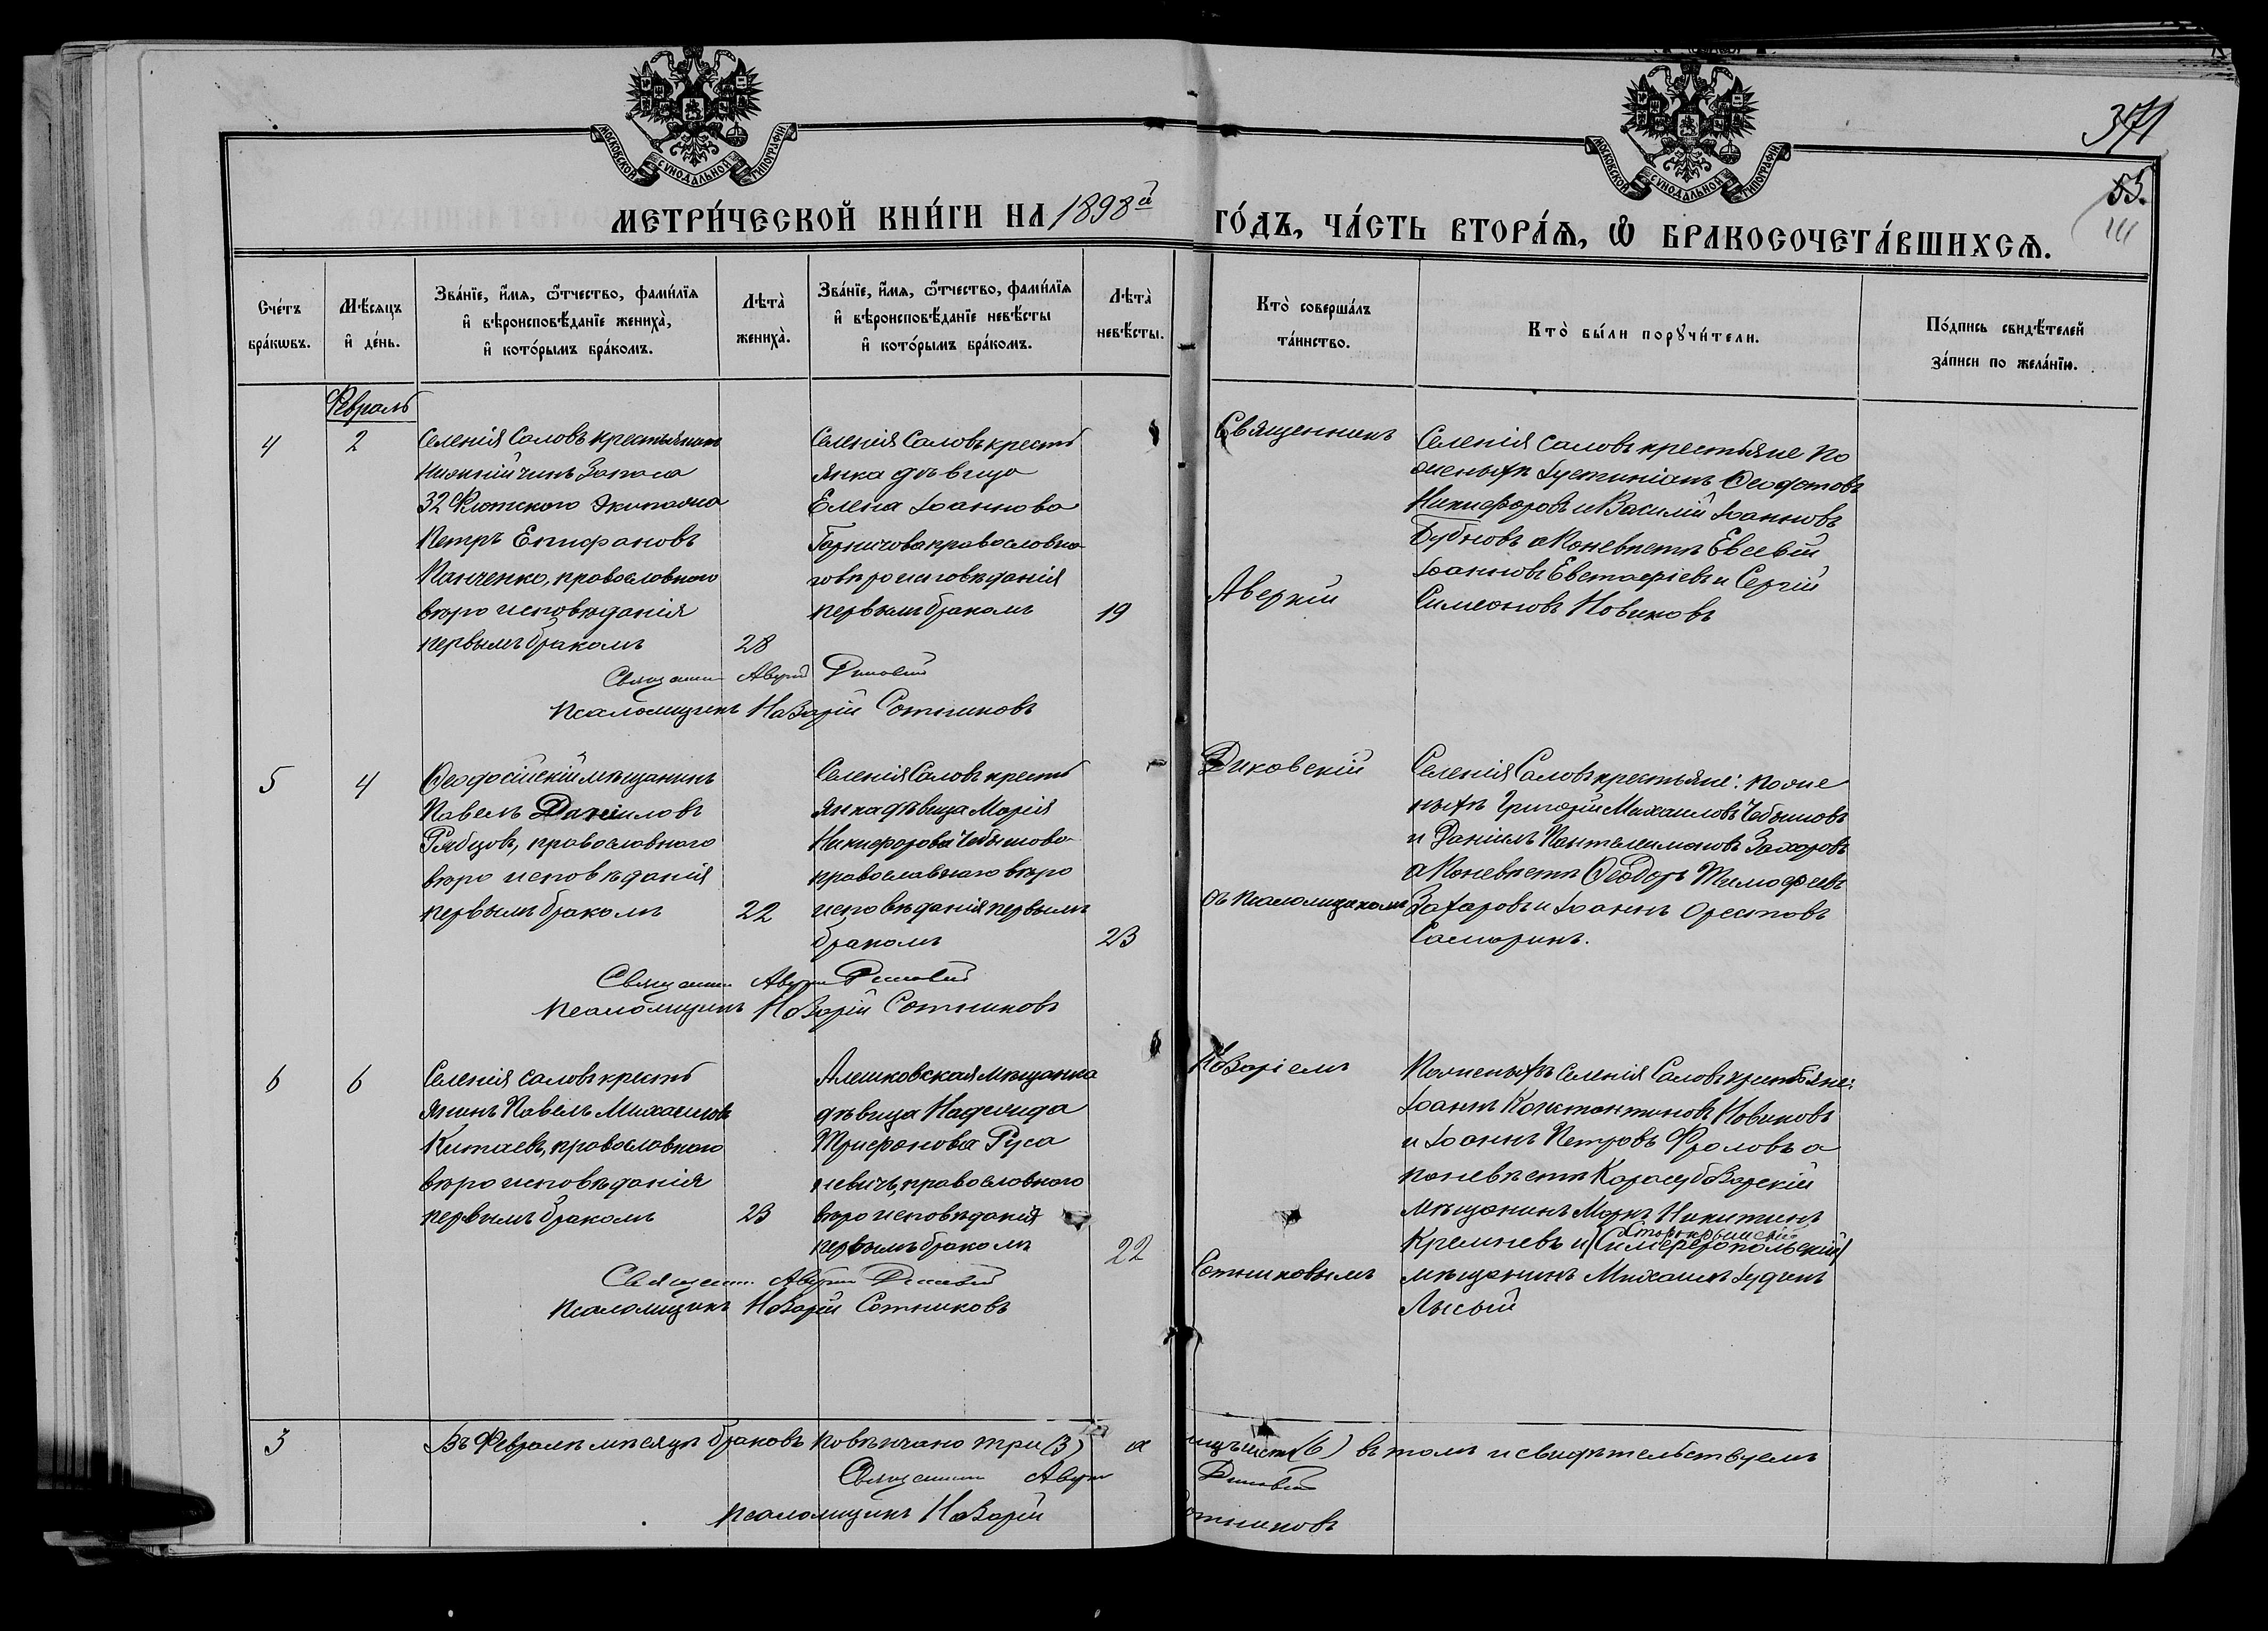 МОСКОВСКОЙ СѴНОДАЛЬНОЙ ТИПОГРАФІИ
МОСКОВСКОЙ СѴНОДАЛЬНОЙ ТИПОГРАФІИ
371
53.
МЕТРИ́ЧЕСКОЙ КНИ́ГИ НА 1898й ГО́ДЪ, ЧА́СТЬ ВТОРА́Ѧ, Ѡ БРАКОСОЧЕТА́ВШИХСѦ.
Сче́тъ
бра́кѡвъ.
Мѣ́сяцъ
и де́нь.
Зва́нїе, и́мѧ, ѻ҆́тчество, фами́лїѧ
и вѣроисповѣ́данїе жениха̀,
и кото́рымъ бра́комъ.
Лѣта̀
жениха̀.
Зва́нїе, и́мѧ, ѻ҆́тчество, фами́лїѧ
и вѣроисповѣ́данїе невѣ́сты
и кото́рымъ бра́комъ.
Лѣта̀
невѣ́сты.
Кто̀ соверша́лъ
та́инство.
Кто̀ бы́ли порꙋчи́тели.
По́дпись свидѣ́телей
за́писи по жела́нїю.
Февраль
4
2
Селенія Саловъ крестьянинъ
Нижній чинъ Запаса
32 Флотскаго Экипажа
Петръ Епифановъ
Панченко, православнаго
вѣро исповѣданія
первымъ бракомъ
28
Селенія Саловъ кресть
янка дѣвица
Елена Іоаннова
православна
го вѣроисповѣданія
первымъ бракомъ
19
Священникъ
Аверкій
Селенія Саловъ крестьяне По
женихѣ Іустиніанъ Ѳеодотовъ
Никифоровъ и Василій Іоанновъ
Бубновъ а По невѣстѣ Евсевій
Іоанновъ Евстафіевъ и Сергій
Симеоновъ Новиковъ
Священникъ Аверкій Диковскій
Псаломщикъ Назарій Сотниковъ
5
4
Ѳеодосійскій мѣщанинъ
Павелъ Даніиловъ
Рябцовъ, православнаго
вѣро исповѣданія
первымъ бракомъ
22
Селенія Саловъ кресть
янка дѣвица Марія
Никифорова Чебышова
православнаго вѣро
исповѣданія первымъ
бракомъ
23
Диковскій
съ псаломщикомъ
Селенія Саловъ крестьяне: по же
нихѣ Григорій Михаиловъ Чебышовъ
и Даніилъ Пантелеимоновъ Захаровъ
а По невѣстѣ Ѳеодоръ Тимофеевъ
Захаровъ и Іоаннъ Орестовъ
Самаринъ.
Священникъ Аверкій Диковскій
Псаломщикъ Назарій Сотниковъ
6
6
Селенія Саловъ кресть
янинъ Павелъ Михаиловъ
Китаевъ, православнаго
вѣро исповѣданія
первымъ бракомъ
23
Алешковская мѣщанка
дѣвица Надежда
Трифонова Руса
невичъ, православнаго
вѣро исповѣданія
первымъ бракомъ
22
Назаріемъ
Сотниковымъ
По женихѣ Селенія Саловъ крестьяне:
Іоаннъ Константиновъ Новиковъ
и Іоаннъ Петровъ Фроловъ а
по невѣстѣ Карасубазарскій
мѣщанинъ Маркъ Никитинъ
Кремневъ и (Симферопольскій)
Старокрымскій
мѣщанинъ Михаилъ Іудинъ
Лысый
Священникъ Аверкій Диковскій
Псаломщикъ Назарій Сотниковъ
3
Въ Февралѣ мѣсяцѣ браковъ повѣнчано три (3) а всего шесть (6) въ томъ и свидѣтельствуемъ
Священникъ Аверкій Диковскій
Псаломщикъ Назарій Сотниковъ